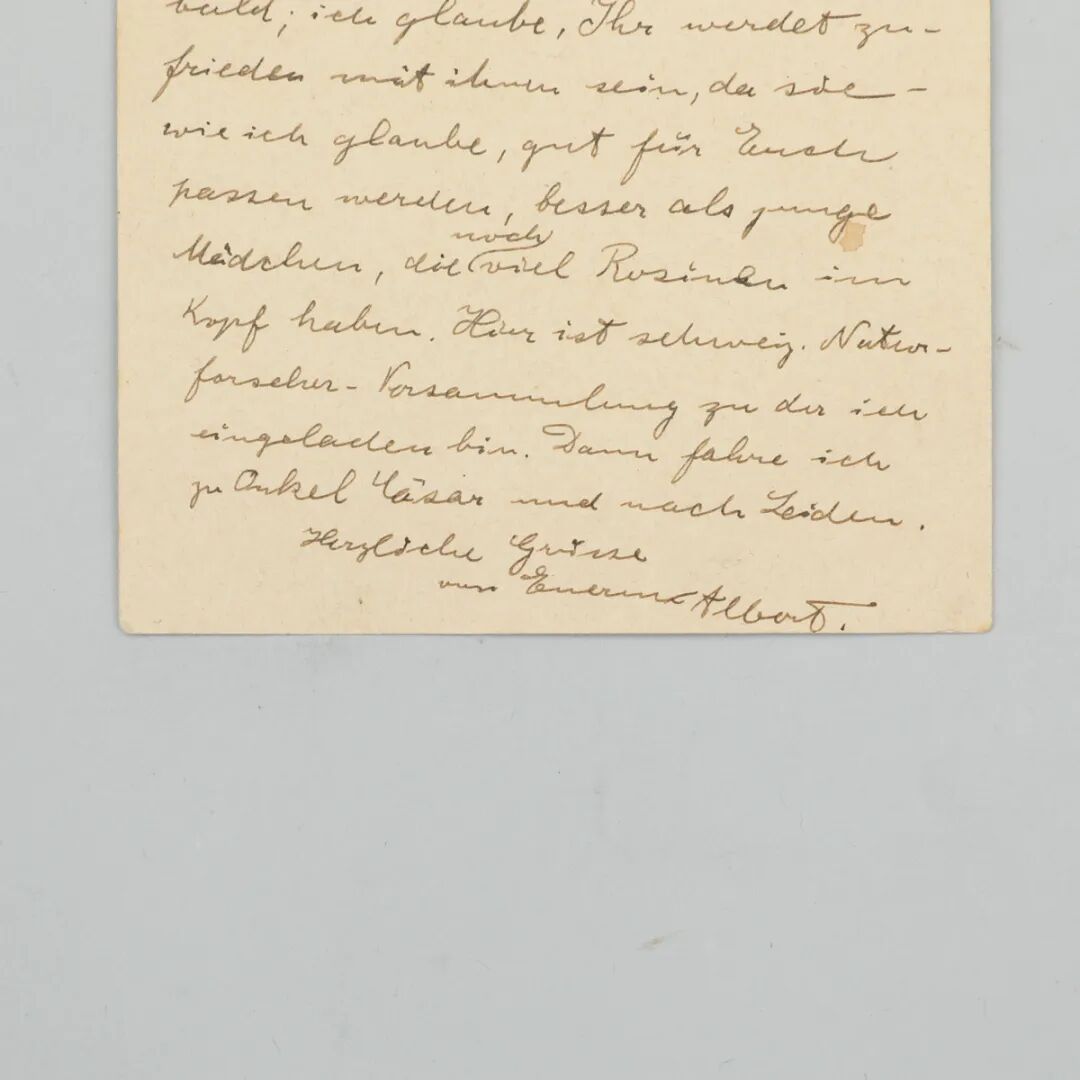 bald; ich glaube, Ihr werdet zu-
frieden mit ihnen sein, da sie -
wie ich glaube, gut für Euch
passen werden, besser als junge
noch
Mädchen, die viel Rosinen im
Kopf haben. Hier ist schweiz. Natur-
forscher-Versammlung zu der ich
eingeladen bin. Dann fahre ich
zu Onkel Cäsar und nach Leiden.
Herzliche Grüsse
von Euerm Albert.